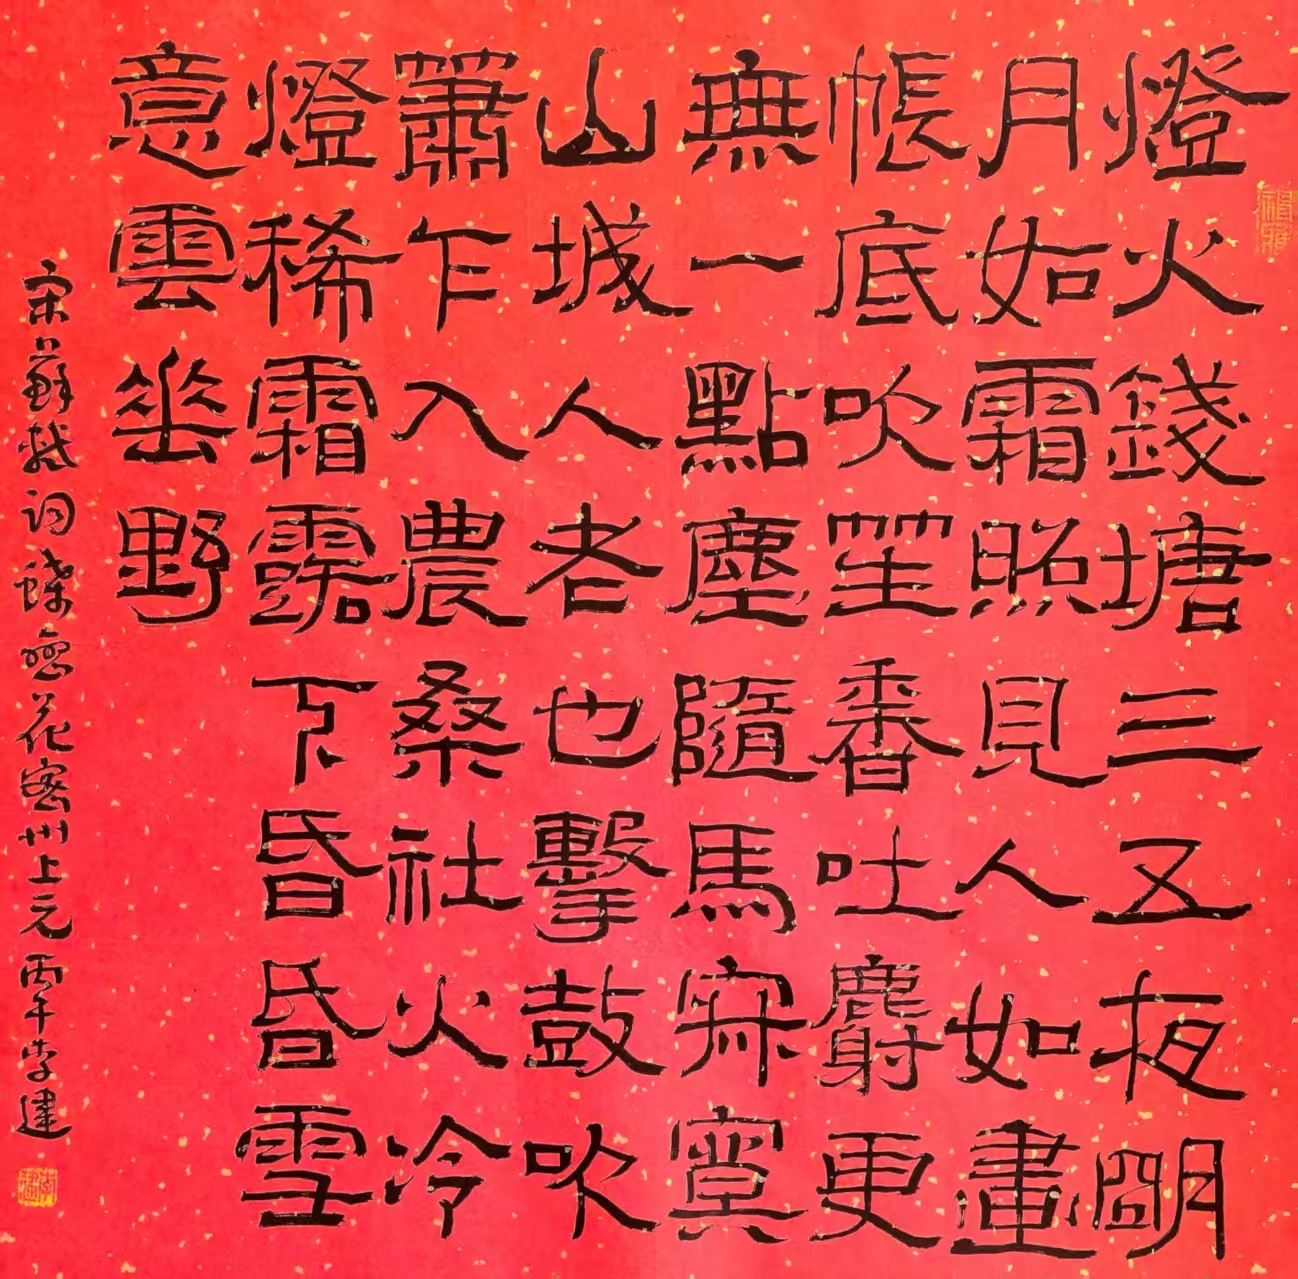 燈火錢塘三五夜明
月如霜照見人如畫
帳底吹笙香吐麝更
無一點塵隨馬寂寞
山城人老也擊鼓吹
簫乍入農桑社火冷
燈稀霜露下昏昏雪
意雲垂野
宋蘇軾詞蝶戀花密州上元 丙午李建